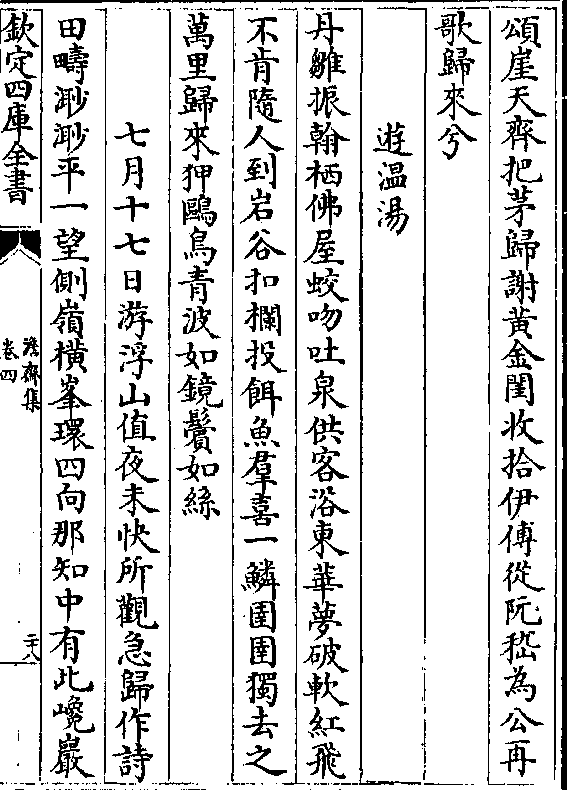 頌崖天齊把茅歸謝黃金閨收拾伊傅從阮嵇為公再
歌歸來兮
遊温湯
丹雛振翰栖佛屋蛟吻吐泉供客浴東華夢破軟紅飛
不肯隨人到岩谷扣欄投餌魚羣喜一鱗圉圉獨去之
萬里歸來狎鷗鳥青波如鏡鬢如絲
七月十七日游浮山值夜未快所觀急歸作詩
田疇渺渺平一望側嶺橫峯環四向那知中有此巉巖
欽定四庫全書
澹齋集
卷四
二十八